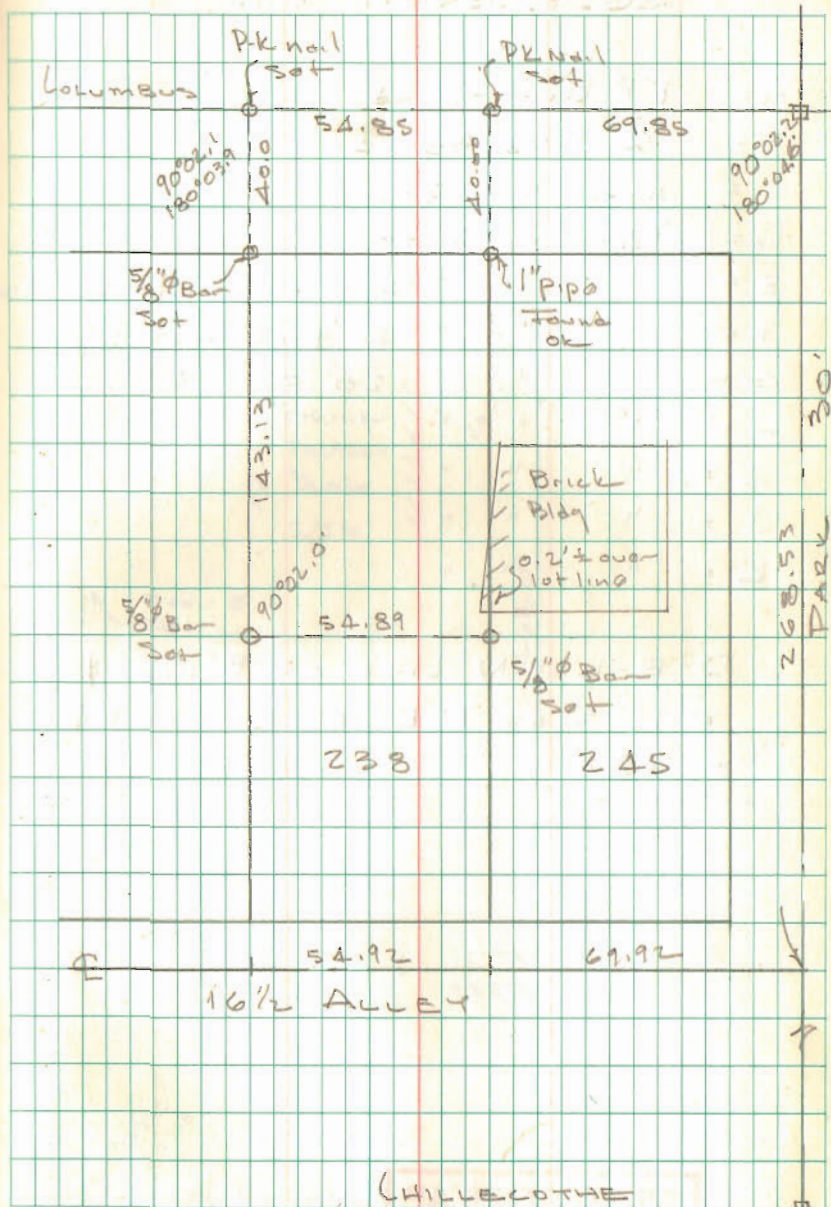 P-K nail
set
PK Nail
set
Columbus
54.85
69.85
90°02.1
180°03.9
40.0
40.00
90°02.2
180°04.6
5/8"φ Bar
Set
1" pipe
Found
OK
143.13
30'
Brick
Bldg
0.2'± over
lot line
268.53
PARK
90°02.0'
5/8"φ Bar
Set
54.89
5/8"φ Bar
Set
238
245
℄
54.92
69.92
16 1/2 ALLEY
CHILLECOTHE